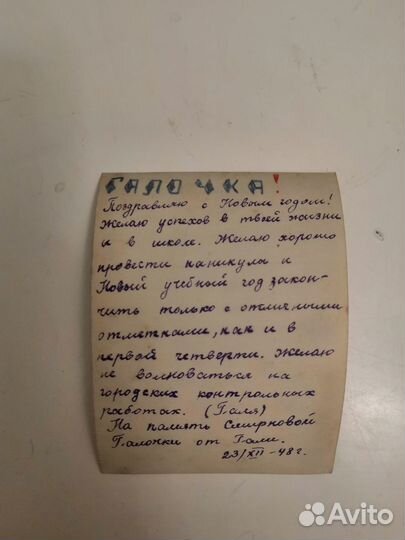 ГАЛОЧКА!
Поздравляю с Новым годом!
Желаю успехов в твоей жизни
и в школе. Желаю хорошо
провести каникулы и
Новый учебный год закон-
чить только с отличными
отметками, как и в
первой четверти. Желаю
не волноваться на
городских контрольных
работах. (Галя)
На память Смирновой
Галочки от Гали.
23/XII-48 г.
Avito